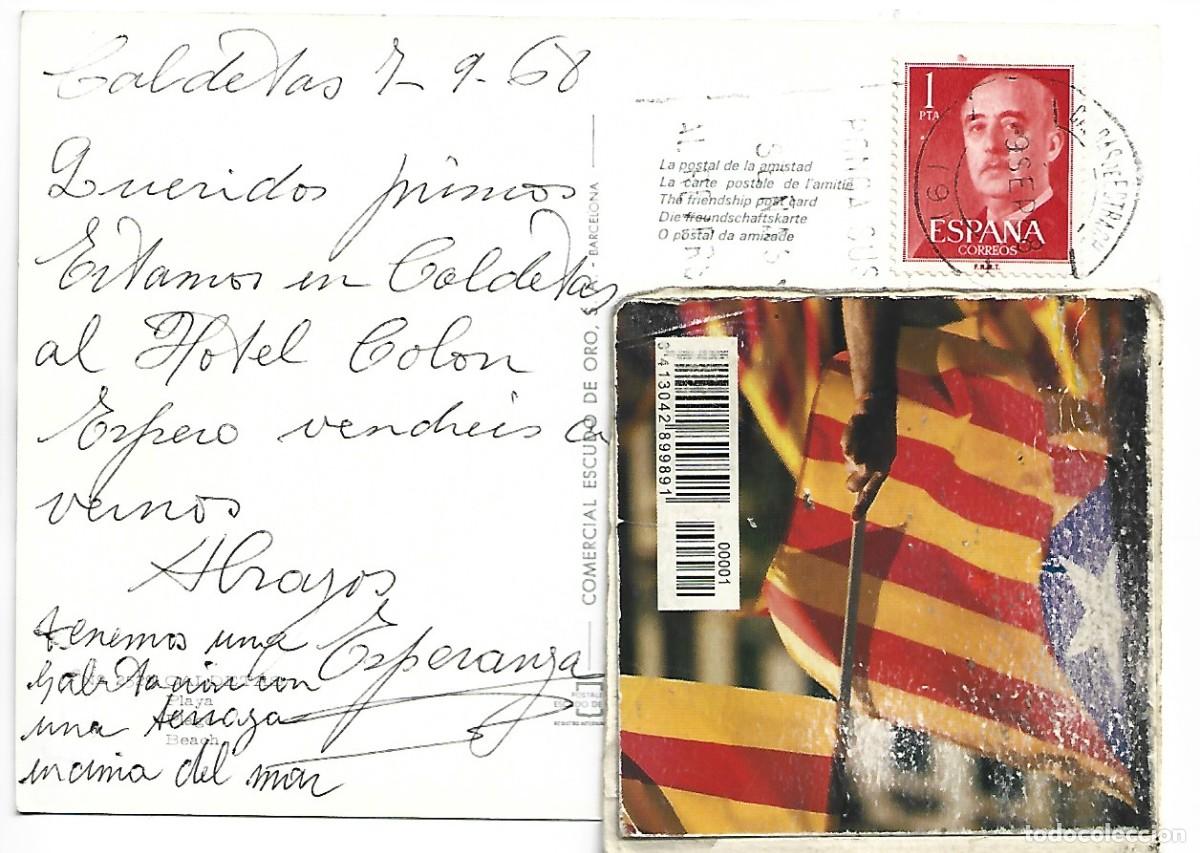 Caldetas 7-9-68
Queridos primos
Estamos en Caldetas
al Hotel Colon
Espero vendreis a
vernos
Abrazos
Esperanza
tenemos una
habitación con
una terraza
encima del mar
CALDETAS
Playa
Beach
COMERCIAL ESCUDO DE ORO, S. - BARCELONA
La postal de la amistad
La carte postale de l'amitié
The friendship post card
Die freundschaftskarte
O postal da amizade
1
PTA
ESPAÑA
CORREOS
F.N.M.T.
9 SEP
3 413042 899891
00001
todocoleccion